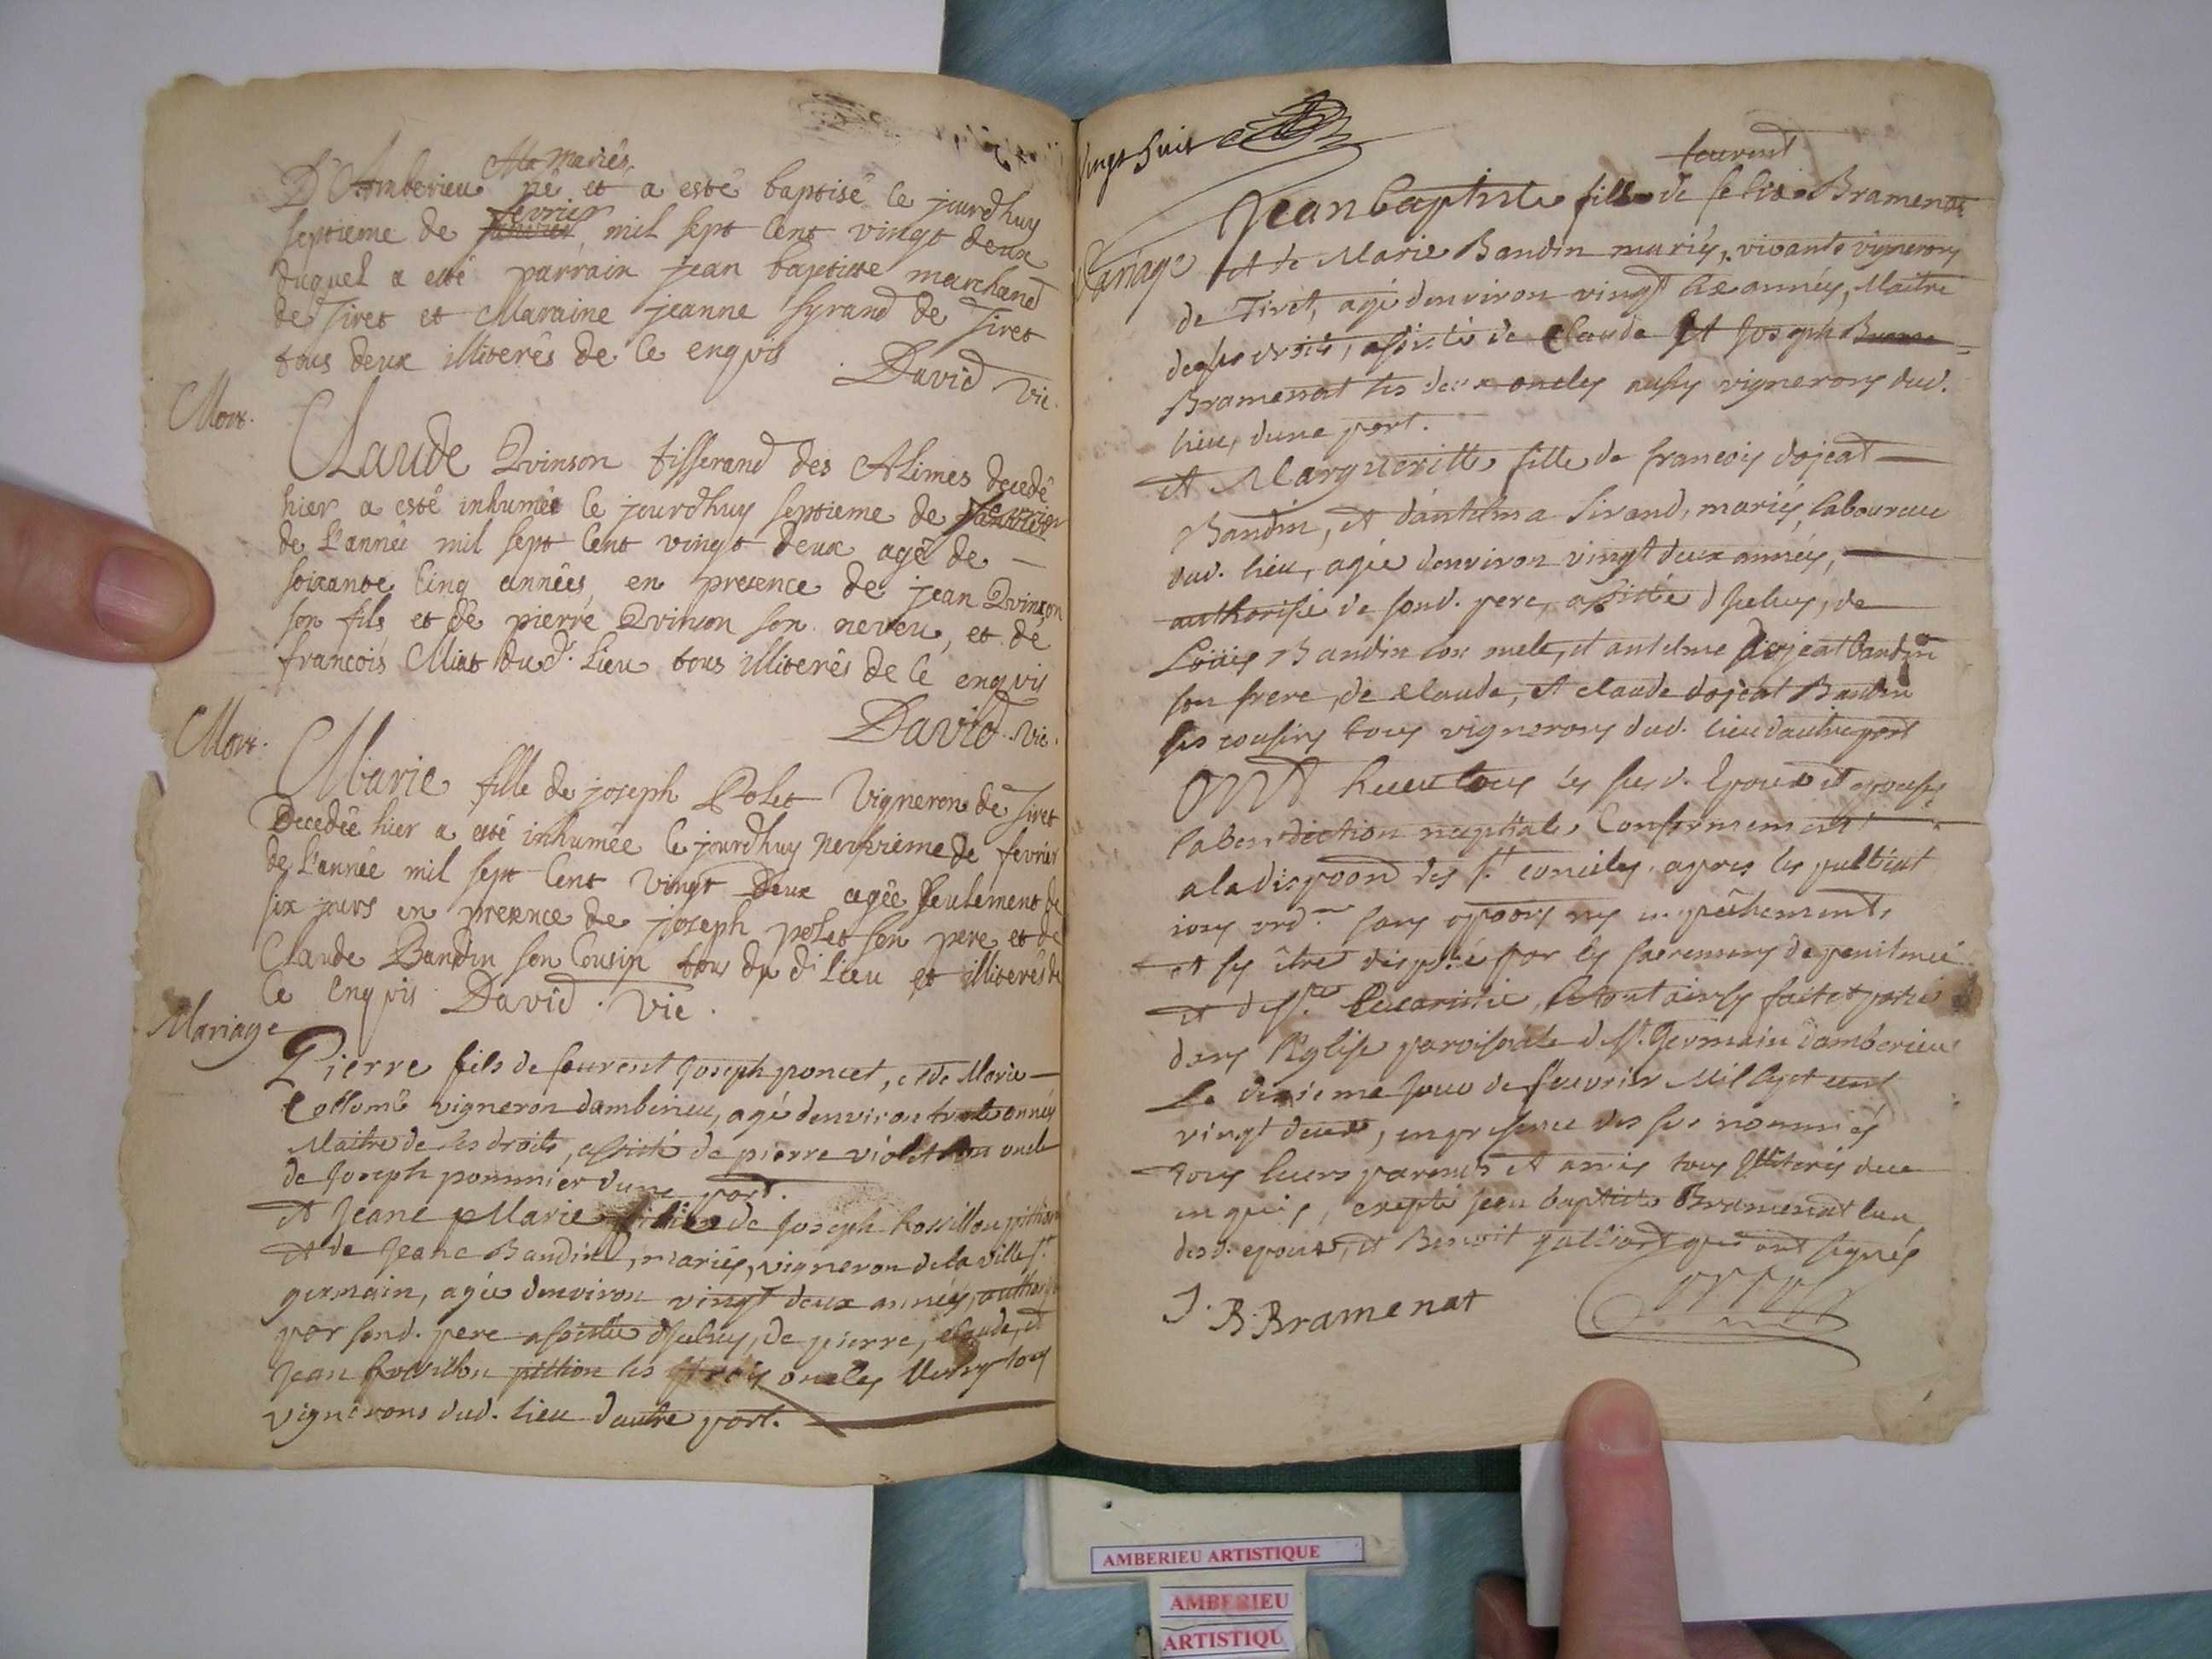 Ala mariés
D'Amberieu né et a esté baptisé ce jourdhuy
septieme de fevrier mil sept cent vingt deux
duquel a esté parrain jean baptiste marchand
de Tiret et Maraine jeanne syrand de Tiret
tous deux illiterés de ce enquis David vic.
Mort.
Claude Qvinson tisserand des Alimes decedé
hier a esté inhumée ce jourdhuy septieme de fevrier
de L'année mil sept cent vingt deux agé de
soixante cinq années en presence de jean Qvinson
son fils et de pierre Qvinson son neveu, et de
francois Miat dud. Lieu tous illiterés de ce enquis
David vic.
Mort.
Marie fille de joseph Polet Vigneron de Tiret
Decedée hier a esté inhumée ce jourdhuy neufvieme de fevrier
de L'année mil sept cent vingt deux agée seulement de
six jours en presence de joseph polet son pere et de
Claude Bandin son Cousin tous du d. Lieu et illiterés de
ce enquis David vic.
Mariage
Pierre fils de feurent Joseph poncet, et de Marie
Collomé vigneron damberieu, agé denviron trente année
Maitre de ses droits, assisté de pierre violet son oncle
de Joseph pommier dune part.
et Jeane Marie de Joseph Rossillon pittion
et de Jeane Bandin, mariés, vigneron de la ville st.
germain, agée denviron vingt deux années, authorisée
par sond. pere assistée dyceluy, de pierre, claude, et
Jean Rossillon pittion ses trois oncles tous
vignerons dud. lieu dautre part.
vingt huit
feurent
Jean baptiste fille de felix Bramenat
Mariage
et de Marie Bandin mariés, vivants vignerons
de Tiret, agé denviron vingt six années, Maitre
de ses droits, assisté de Claude et Joseph
Bramenat ses deux oncles aussy vignerons dud.
lieu, dune part.
et Margueritte fille de francois dojeat
Bandin, et dantelma sirand, mariés, laboureur
dud. lieu, agée denviron vingt deux années,
authorisée de sond. pere, assistée dyceluy, de
Loüis Bandin son oncle, et antelme dojeat bandin
son frere, de claude, et claude dojeat Bandin
ses cousins tous vignerons dud. lieu dautre part
ONT les susd. Epoux et epouses
la Benediction nuptiale, Conformement
a la dispoon des st. conciles, apres les publicat
ions ordres sans opoons ny empêchement,
et sy être disposé par les sacremens de penitence
et de ste. Eucaristie, le tout ainsy fait et passé
dans l'Eglise paroissiale de st. Germain damberieu
Le dixieme Jour de feuvrier Mil sept cent
vingt deux, en presence des sus nommés
tous leurs parents et amis tous illiterés de ce
enquis, excepté jean baptiste Bramenat lun
desd. epoux, et Benoit galliard qui ont signés
J. B. Bramenat